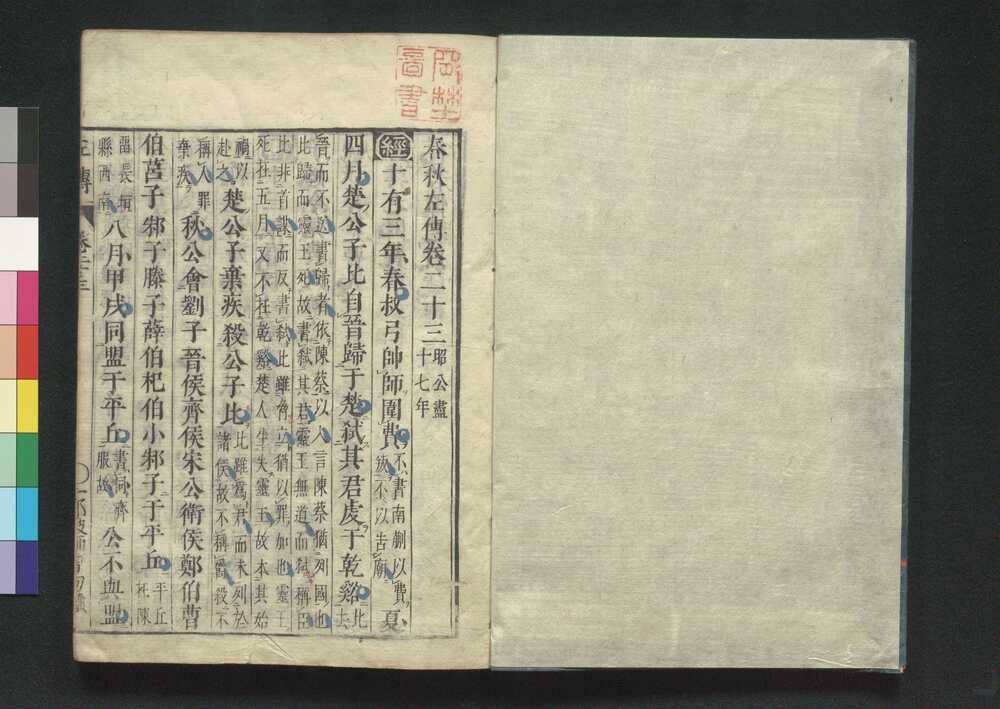 春秋左傳卷二十三 昭公盡十七年
經 十有三年春叔弓帥師圍費 不書南蒯以費叛不以告廟 夏
四月楚公子比自晉歸于楚弒其君虔于乾谿 比去
晉而不送書歸者依陳蔡以入言陳蔡猶列國也
比歸而靈王死故書弒其君靈王無道而弒稱臣
比非首謀而反書弒比雖脅立猶以罪加也靈王
死在五月又不在乾谿楚人生失靈王故本其始
禍以赴之 楚公子棄疾殺公子比 比雖為君而未列於諸侯故不稱爵殺不
稱人罪棄疾 秋公會劉子晉侯齊侯宋公衛侯鄭伯曹
伯莒子邾子滕子薛伯杞伯小邾子于平丘 平丘在陳
留長垣縣西南 八月甲戌同盟于平丘 書同齊服故 公不與盟
左傳 卷二十三 一
岡埜圖書